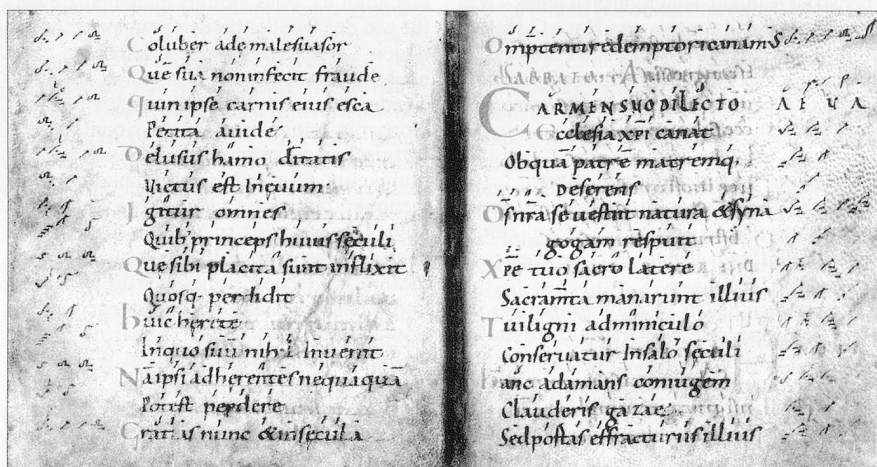 Coluber adę malesuasor
Que sua non infecit fraude
Quin ipse carnis eius esca
Petita auide
Delusus hamo ditatis
Uictus est Inęuum
Igitur omnes
Quib; princeps huius sęculi
Que sibi placita sunt inflixit
Quosq; perdidit
huic herete
Inquo suū nihil Inuenit
Nā ipsi adherentes nequaquā
Potest perdere
Gratias nunc & insęcula
Omptenti redemptori canamS
CARMEN SUO DILECTO AEUA
Ecclesia xpi canat
Obquā patrē matremq;
Deserens
OSnrā se uestiit natura & syna
gogam respuit
Xpē tuo sacro latere
Sacramta manarunt illius
Tui ligni adminiculo
Conseruatur Insalo sęculi
hanc adamans coniugem
Clauderis gazae
Sed portas effracturus illius